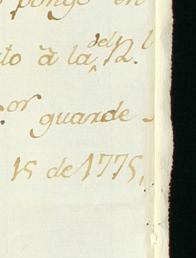 pongo en
to à la del N.
or guarde
15 de 1775,